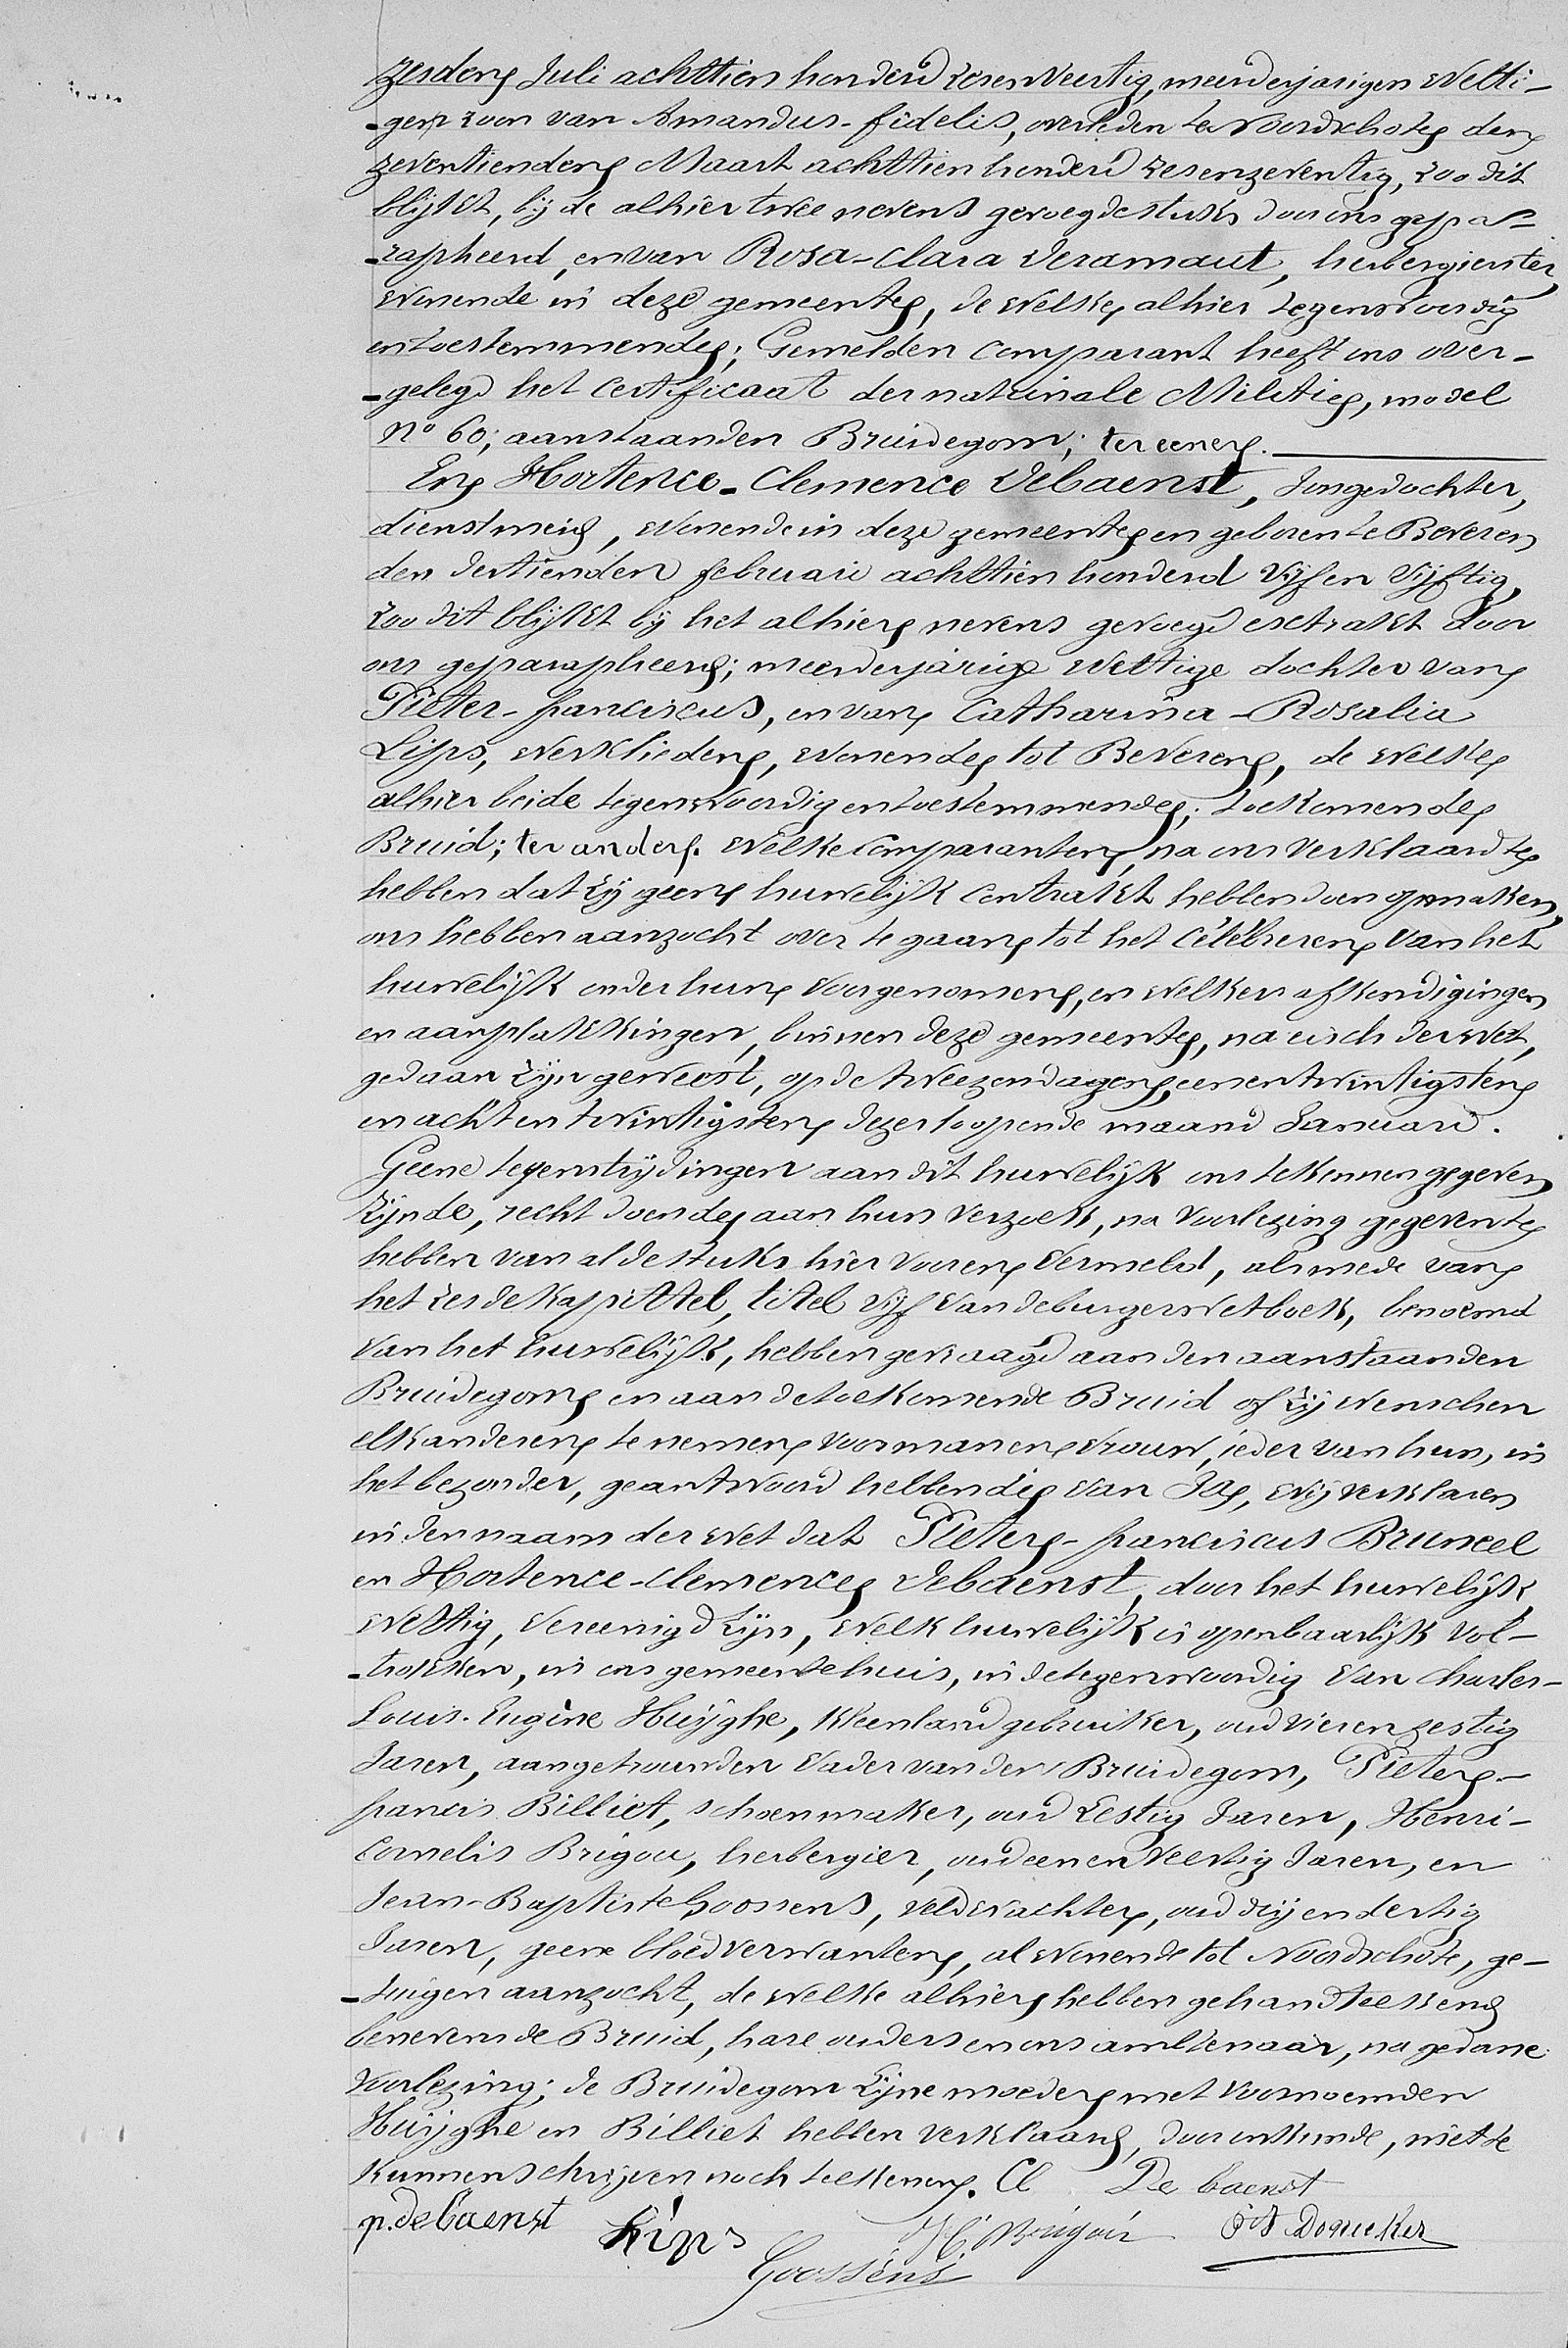 zesden Juli achttien honderd zesenveertig, meerderjarigen Wetti-
-gen zoon van Amandus-fidelis, overleden te Noordschote den
zeventienden Maart achttien honderd zesenzeventig, zoo dit
blijkt, bij de alhier twee nevens gevoegde stuks door ons gepa-
-rapheerd, en van Rosa-Clara Veramaut, herbergierster,
Wonende in deze gemeente, de Welke alhier tegenwoordig
en toestemmende; Gemelden Comparant heeft ons over-
-gelegd het Certificaat der nationale Militie, model
No 60; aanstaanden Bruidegom; ter eener.
En Hortence-Clemence Debaenst, Jongedochter,
dienstmeid, Wonende in deze gemeente en geboren te Beveren
den dertienden februari achttien honderd Vijf en Vijftig,
zoo dit blijkt bij het alhier nevens gevoegd extrakt door
ons geparapheerd; meerderjarige Wettige dochter van
Pieter-franciscus, en van Catharina-Rosalia
Lips, Werklieden, Wonende tot Beveren, de Welke
alhier beide tegenwoordig en toestemmende; toekomende
Bruid; ter ander. Welke Comparanten, na ons verklaard te
hebben dat zij geen huwelijk contrakt hebben doen opmaken,
ons hebben aanzocht over te gaan tot het celebreren van het
huwelijk onder hun voorgenomen, en Welkers afkondigingen
en aanplakkingen, binnen deze gemeente, na eisch der Wet,
gedaan zijn geweest, op de twee zondagen, eenentwintigsten
en achtentwintigsten dezer loopende maand Januari.
Geene tegenstrijdingen aan dit huwelijk ons te kennen gegeven
zijnde, recht doende aan hun verzoek, na voorlezing gegeven te
hebben van al de stuks hier voren Vermeld, alsmede van
het zesde Kapittel, titel vijf van de burgerwetboek, benoemd
Van het huwelijk, hebben gevraagd aan den aanstaanden
Bruidegom en aan de toekomende Bruid of zij Wenschen
elkanderen te nemen voor man en Vrouw, ieder van hun, in
het bezonder, geantwoord hebbende van Ja, Wij verklaren
in den naam der Wet dat Pieter-franciscus Bruneel
en Hortence-Clemence Debaenst, door het huwelijk,
Wettig, Vereenigd zijn, Welk huwelijk is openbaarlijk vol-
-trokken, in ons gemeentehuis, in de tegenwoordig Van Charles-
Louis-Eugène Huÿghe, Kleenlandgebruiker, oud vierenzestig
Jaren, aangetrouwden Vader van den Bruidegom, Pieter-
francis Billiet, schoenmaker, oud zestig Jaren, Henri-
Cornelis Brigou, herbergier, oud eenen Veertig Jaren, en
Jean-Baptiste Goossens, veldwachter, oud drij en dertig
Jaren, geene bloedverwanten, al Wonende tot Noordschote, ge-
-tuigen aanzocht, de Welke alhier hebben gehandteekend
benevens de Bruid, hare ouders en ons ambtenaar, na gedane
Voorlezing; de Bruidegom zijne moeder met voornoemden
Huÿghe en Billiet hebben verklaard, door onkunde, niet te
kunnen schrijven noch teekenen. Cl De baenst
p. de baenst Lips H. C. Brigou Dequeker
Goossens